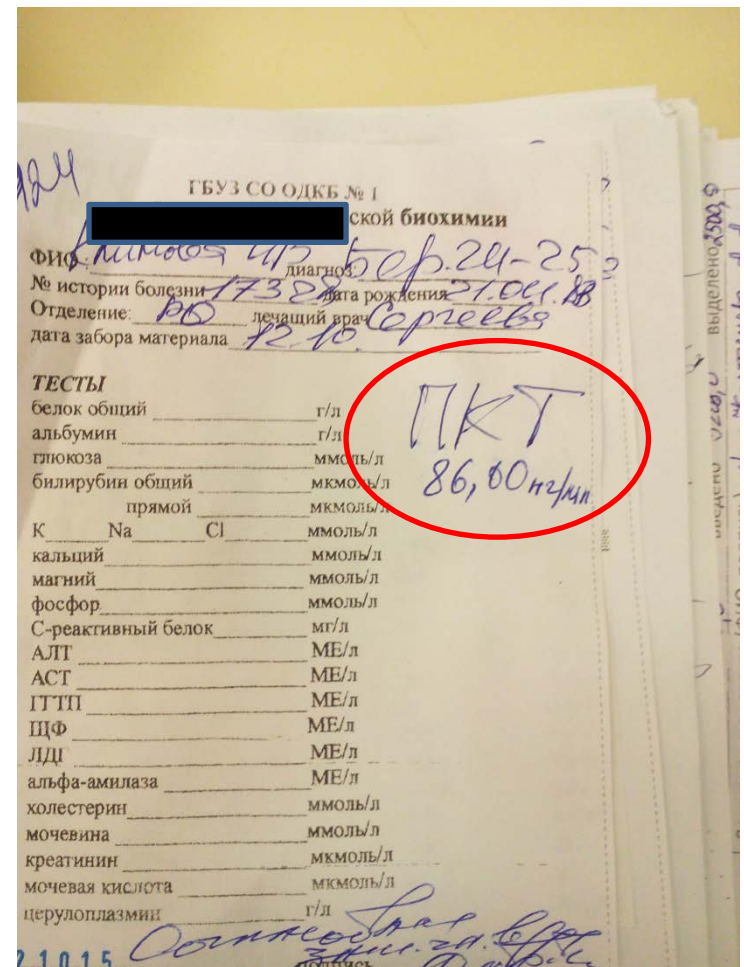 ГБУЗ СО ОДКБ № 1
ской биохимии
ФИО: Климова И/Р диагноз: Бер. 24-25
№ истории болезни 17328 дата рождения 21.04.88
Отделение: РО лечащий врач Сергеева
дата забора материала 12.10.
ТЕСТЫ
белок общий г/л
альбумин г/л
глюкоза ммоль/л
билирубин общий мкмоль/л
прямой мкмоль/л
K Na Cl ммоль/л
кальций ммоль/л
магний ммоль/л
фосфор ммоль/л
С-реактивный белок мг/л
АЛТ МЕ/л
АСТ МЕ/л
ГГТП МЕ/л
ЩФ МЕ/л
ЛДГ МЕ/л
альфа-амилаза МЕ/л
холестерин ммоль/л
мочевина ммоль/л
креатинин мкмоль/л
мочевая кислота мкмоль/л
церулоплазмин г/л
ПКТ
86,60 нг/мл
2 1 0 1 5
подпись
выделено 2500,0
введено